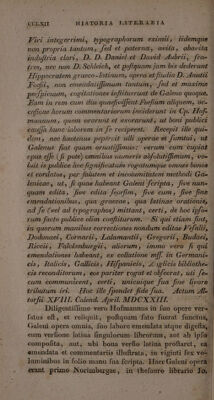 CCLXII HISTORIA LITERARIA
Viri integerrimi, typographorum eximii, iidemque
non propria tantum, sed et paterna, avita, abavita
industria clari, D. D. Daniel et David Aubrii, fra-
tres, nec non D. Schleich, et postquam jam bis dederunt
Hippocratem graeco-latinum, opera et studio D. Anutii
Foesii, non emendatissimum tantum, sed et maxime
perspicuum, cogitatione instituerunt de Galeno quoque.
Eam in rem cum illis quaesivissent Foesium aliquem, oc-
casione horum commentariorum inciderunt in Cp. Hof-
mannum, quem orarunt et exorarunt, ut boni publici
caussa hunc laborem in se reciperet. Recepit ille qui-
dem, nec hactenus pepercit ulli operae et sumtui, ut
Galenus fiat quam ornatissimus: verum cum cupiat
opus esse (si pote) omnibus numeris absolutissimum, vo-
luit is publice hoc significatum rogatumque omnes bonos
et cordatos, per salutem et incolumitatem methodi Ga-
lenicae, ut, si quae habeant Galeni scripta, sive nun-
quam edita, sive edita seorsim, sive cum, sive sine
emendationibus, qua graecae, qua latinae orationis,
ad se (vel ad typographos) mittant, certi, de hoc ipso-
rum facto publice olim constiturum. Si qui etiam sint,
in quorum manibus correctiones nondum editae Vesalii,
Dodonaei, Cornarii, Lalamantii, Gregorii, Budaei,
Riccii, Falckenburgii, aliorum, immo vero si qui
emendationes habeant, ex collatione mss. in Germani-
cis, Italicis, Gallicis, Hispanicis, Anglicis bibliothe-
cis reconditorum, eos pariter rogat et obsecrat, uti se-
cum communicent, certi, unicuique sua fine livore
tributum iri. Hoc ille spondet fide sua. Actum Al-
torfii XVIII. Calend. April. MDCXXIII.
Diligentissime vero Hofmannus in suo opere ver-
satus est, et reliquit, postquam fato functus,
Galeni opera omnia, suo labore emendata atque digesta,
cum versione latina singulorum librorum, aut ab ipso
composita, aut, ubi bona versio latina prostaret, ea
emendata et commentariis illustrata, in viginti sex vo-
luminibus in folio manu sua scripta. Haec Galeni opera
erant primo Norimbergae, in thesauro librario Io.